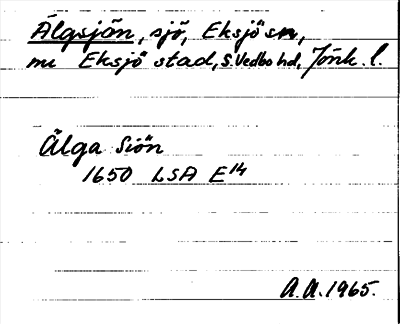 Älgsjön, sjö, Eksjö sn,
nu Eksjö stad, S. Vedbo hd, Jönk. l.
Älga Siön
1650 LSA E14
A.A. 1965.